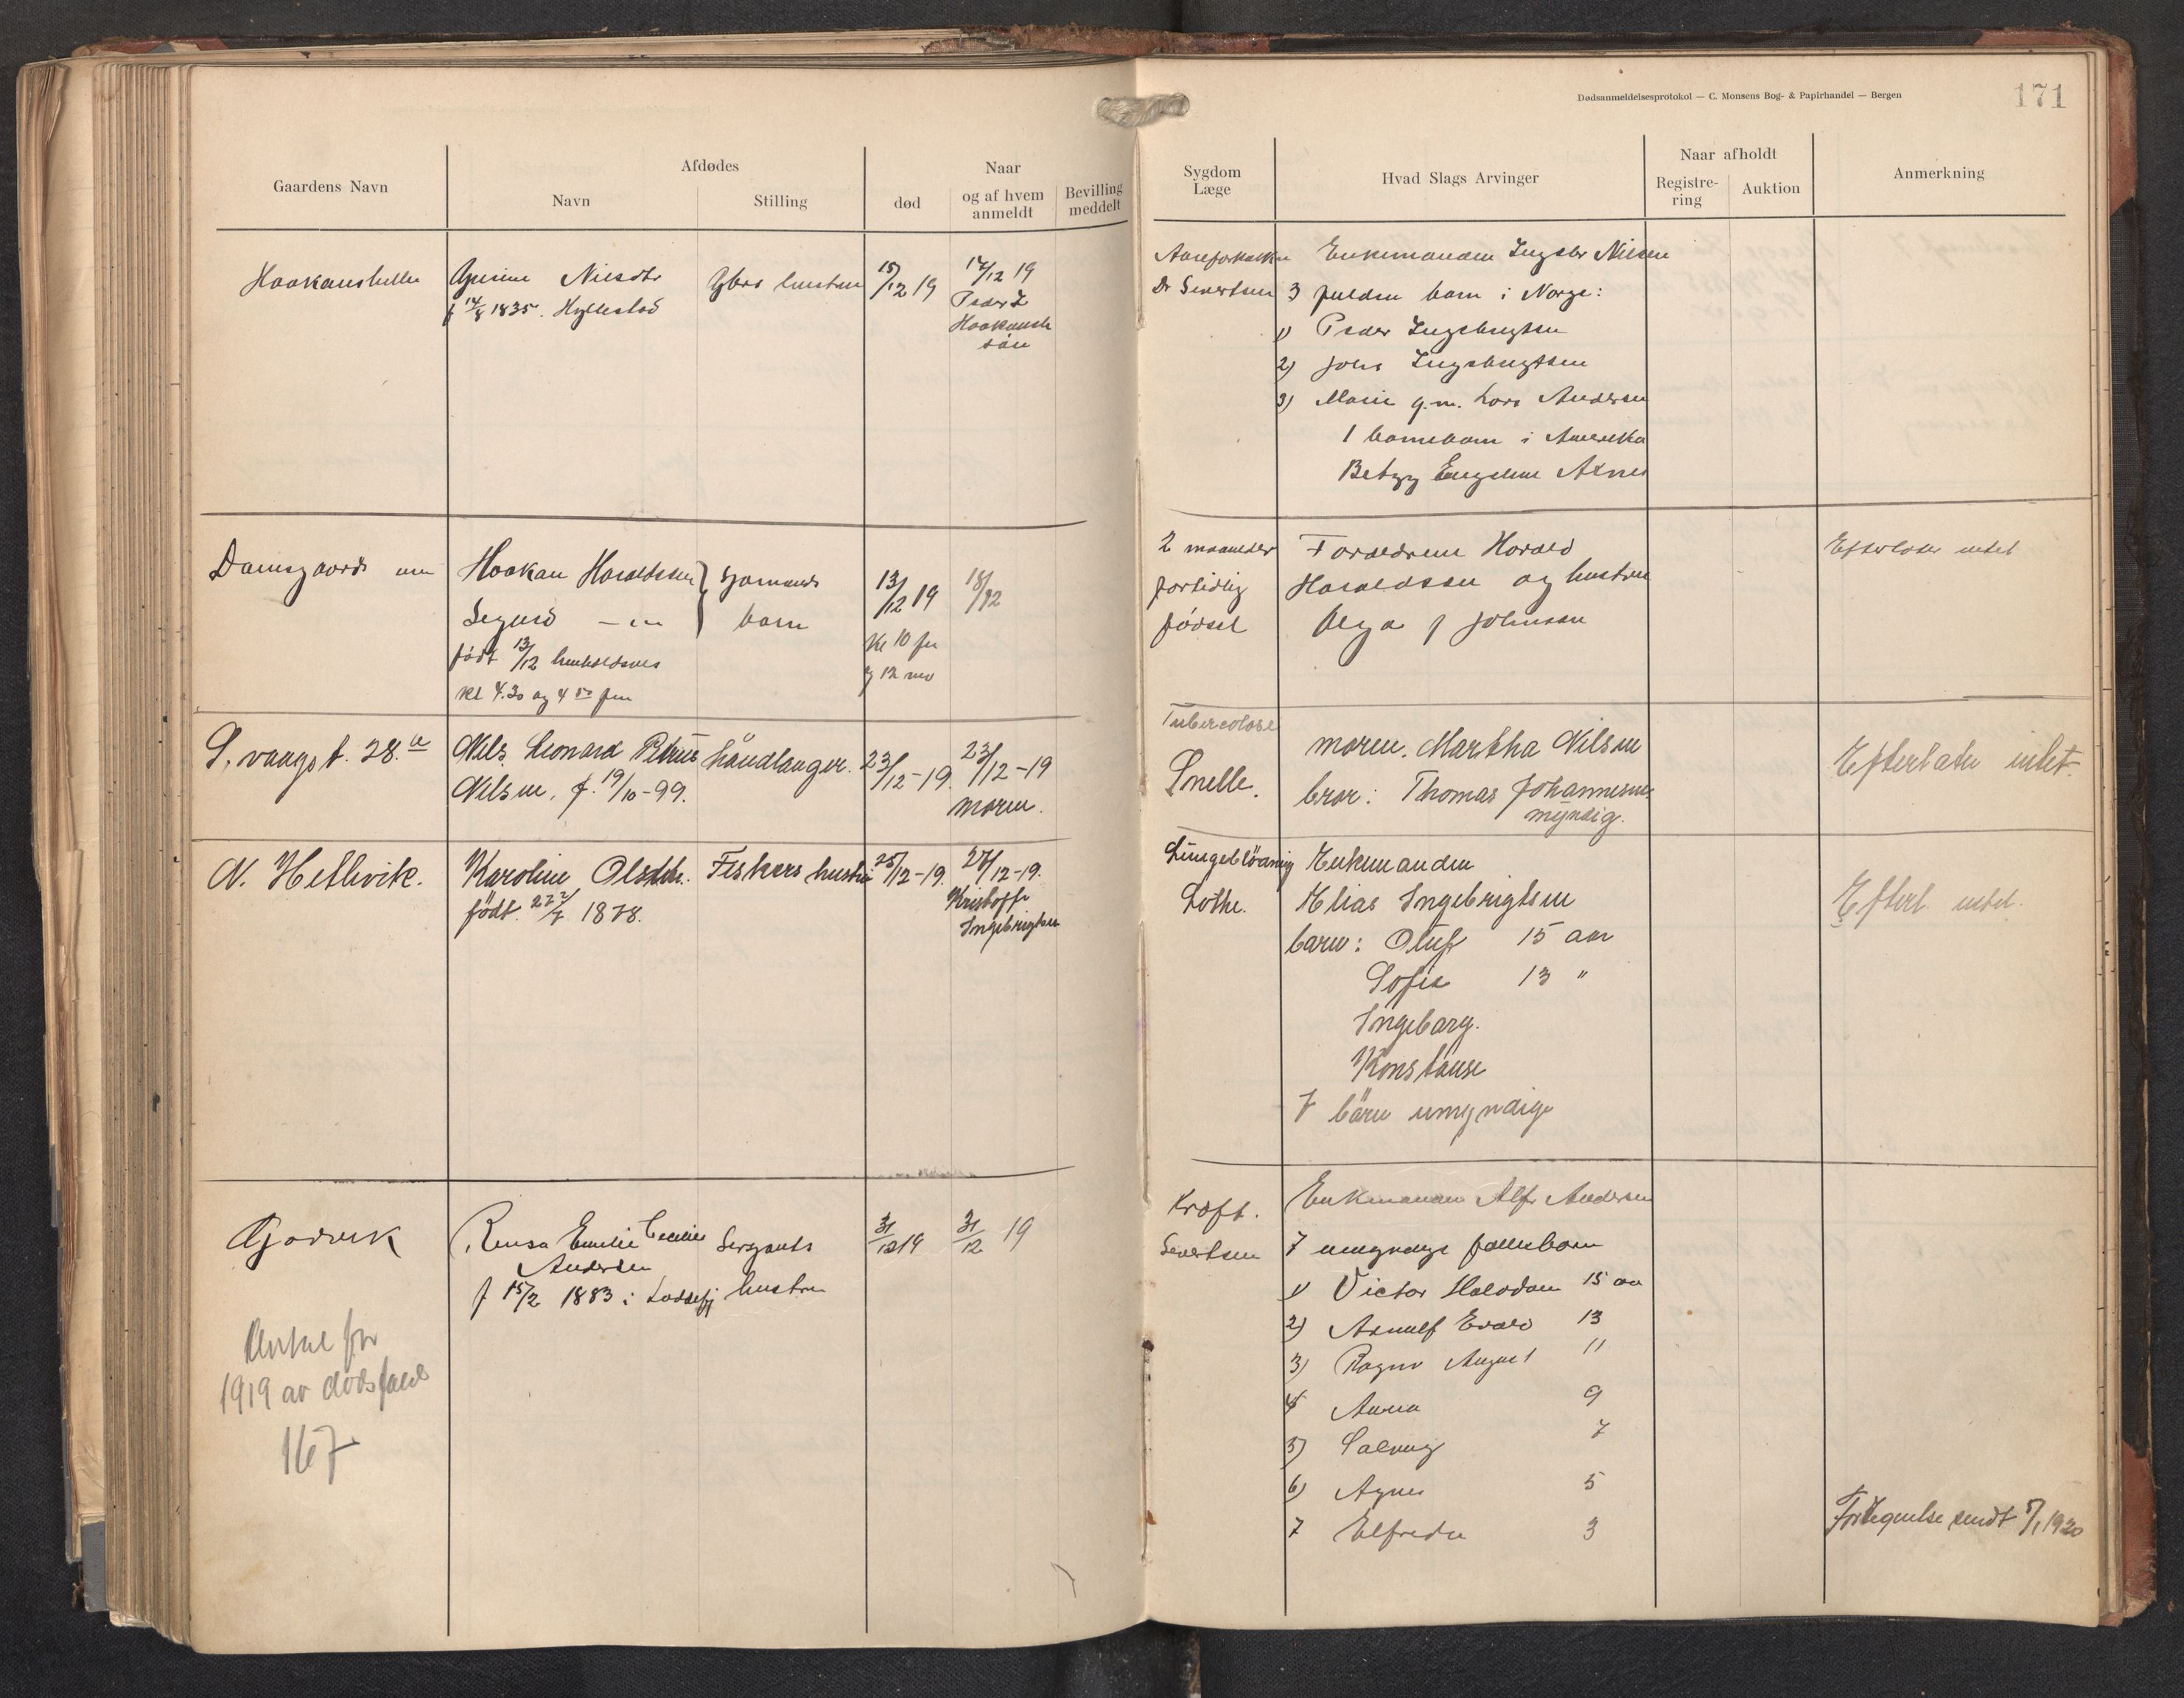 Dødsanmeldelsesprotokol — C. Monsens Bog- & Papirhandel — Bergen
171
Gaardens Navn
Afdødes
Navn
Stilling
Naar
død
og af hvem anmeldt
Bevilling meddelt
Sygdom
Læge
Hvad Slags Arvinger
Naar afholdt
Registrering
Auktion
Anmerkning
Haakanshellen
Nilsdtr
f 14/8 1835. Hyllestad
Gbrs hustru
15/12 19
17/12 19
Peder I
Haakansh
søn
Aareforkalkn
Dr Sivertsen
Enkemanden Ingebr Nilsen
3 fuldm barn i Norge:
1) Peder Ingebrigtsen
2) Johs Ingebrigtsen
3) Marie g.m. Lars Andersen
1 barnebarn i Amerika
Betzy Engeline
Damsgaards
Haakan Haraldssen
Sigurd
født 13/12 henholdsvis
kl 4.30 og 4 fm
Sjømands
barn
13/12 19
kl 10 fm
og 12 md
18/12
2 maaneder
fortidlig
fødsel
Forældrene Harald
Haraldssen og hustru
Olga f Johnsen
Efterlater intet
vaagst. 28.
Nils Leonard Petrus
Nilsen, f. 19/10-99.
håndlanger.
23/12-19.
23/12-19
moren.
Tuberculose
Smelle.
moren. Martha Nilsen
bror: Thomas Johannesen
myndig.
Efterlater intet.
N. Hetlevik.
Karoline Olsdtr.
født. 27/7 1878.
Fiskers hustru
25/12-19.
27/12-19.
Kristoffer
Ingebrigtsen
Lungeblødning
Lothe.
Enkemanden
Elias Ingebrigtsen
barn: Oluf 15 aar
Sofie 13 "
Ingeborg.
Konstanse
7 barn umyndige
Efterl. intet.
Gjøvik
Emelie Cecilie
Andersen
f 15/2 1883 i
Sergants
hustru
31/12 19
31/12 19
Kræft.
Sivertsen
Enkemanden Alfr Andersen
7 umyndige fællesbarn
1) Victor Halvdan 15 aar
2) Arnulf Evald 13
3) Ragnv August 11
4 Anna 9
5) Solveig 7
6) Agnes 5
7 Elfreda 3
Fortegnelse sendt 5/1 1920
Antal for
1919 av dødsfald
167